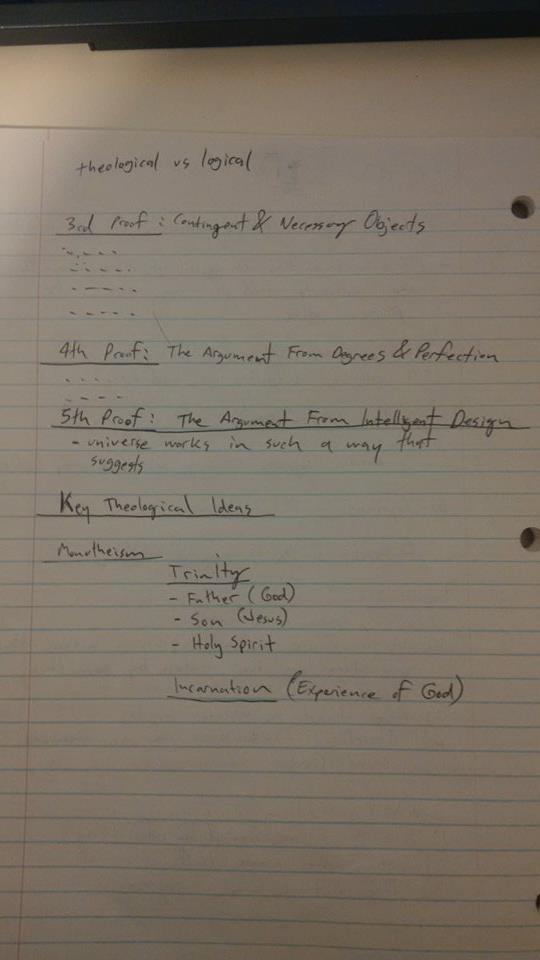 theological vs logical
3rd Proof : Contingent & Necessary Objects
4th Proof: The Argument From Degrees & Perfection
5th Proof: The Argument From Intelligent Design
- universe works in such a way that
suggests
Key Theological Ideas
Monotheism
Trinity
- Father (God)
- Son (Jesus)
- Holy Spirit
Incarnation (Experience of God)